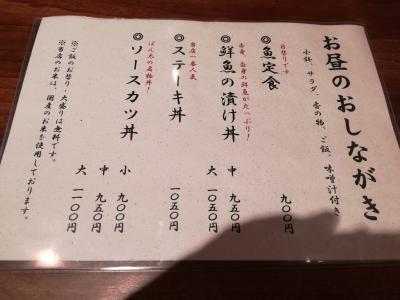 お昼のおしながき
小鉢、サラダ、香の物、ご飯、味噌汁付き
日替りです
◎魚定食 九〇〇円
青魚、白身の鮮魚がたっぷり！
◎鮮魚の漬け丼 中 九五〇円
大 一〇五〇円
当店一番人気
◎ステーキ丼 一〇五〇円
ばん太の名物丼！
◎ソースカツ丼 小 九〇〇円
中 九五〇円
大 一一〇〇円
※ご飯のお替り、大盛りは無料です。
※当店のお米は、国産のお米を使用しております。